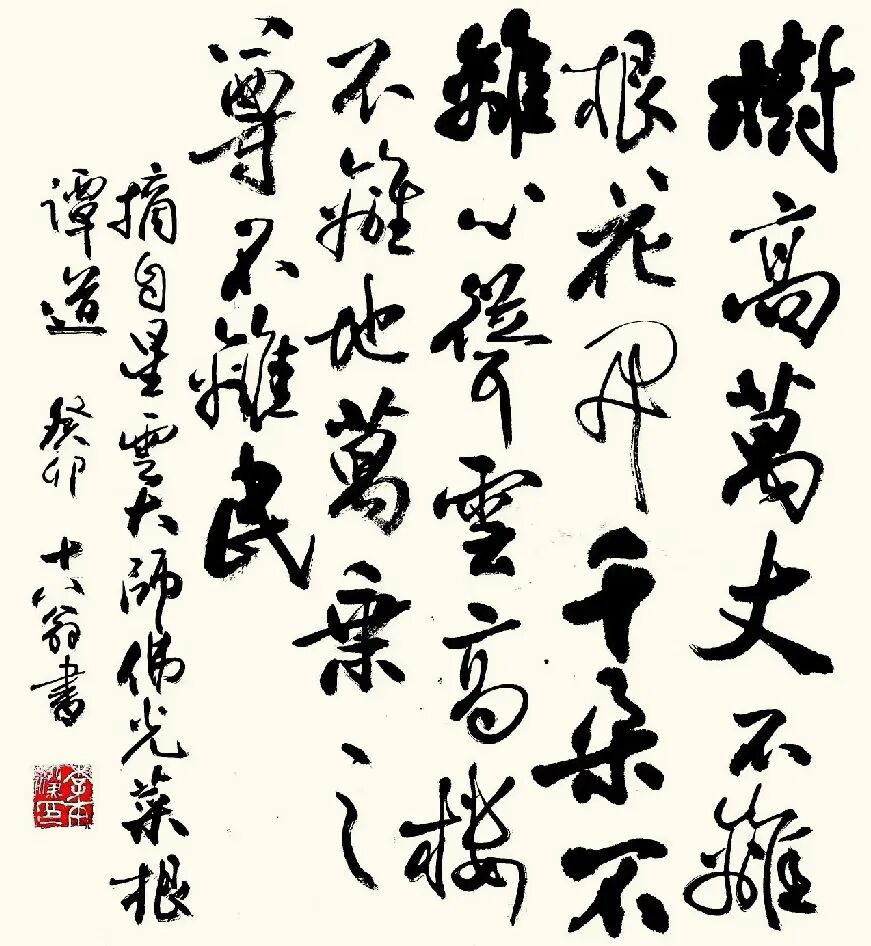 樹高萬丈不離
根花開千朵不
離心聳雲高樓
不離地萬乘之
尊不離民
摘自星雲大師佛光菜根
谭道 癸卯 十八翁書